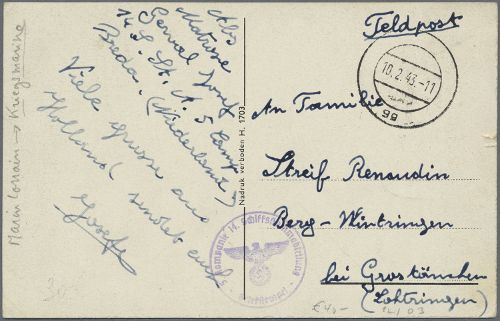 Marin Lorrain → Kriegsmarine
Abs
Matrose
Gerwel Josef
14. S. St. A. 5 Komp
Breda. (Niederlande)
Viele Grüsse aus
Holland sendet euch
Josef
30
Nadruk verboden H. 1703
Feldpost
10.2.43.-11
An Familie
Streif Renaudin
Berg-Wintringen
bei Grostänchen
(Lothringen)
5. Kompanie 14. Schiffsstammabteilung
- Briefstempel -
€4,-